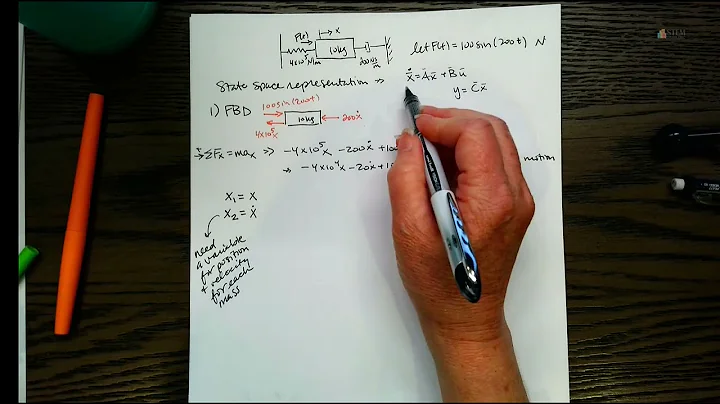 STEM
F(t) → x
10kg
4x10⁵N/m
let F(t) = 100 sin(200t) N
State Space representation ⇒ ẋ̄ = Āx̄ + B̄ū
y = C̄x̄
1) FBD
100sin(200t)
10kg
200ẋ
4x10⁵x
→ ΣFx = max ⇒ -4x10⁵x - 200ẋ
⇒ -4x10⁴x - 20ẋ + motion
x₁ = x
x₂ = ẋ
need
a variable
for position
+ velocity
for each
mass